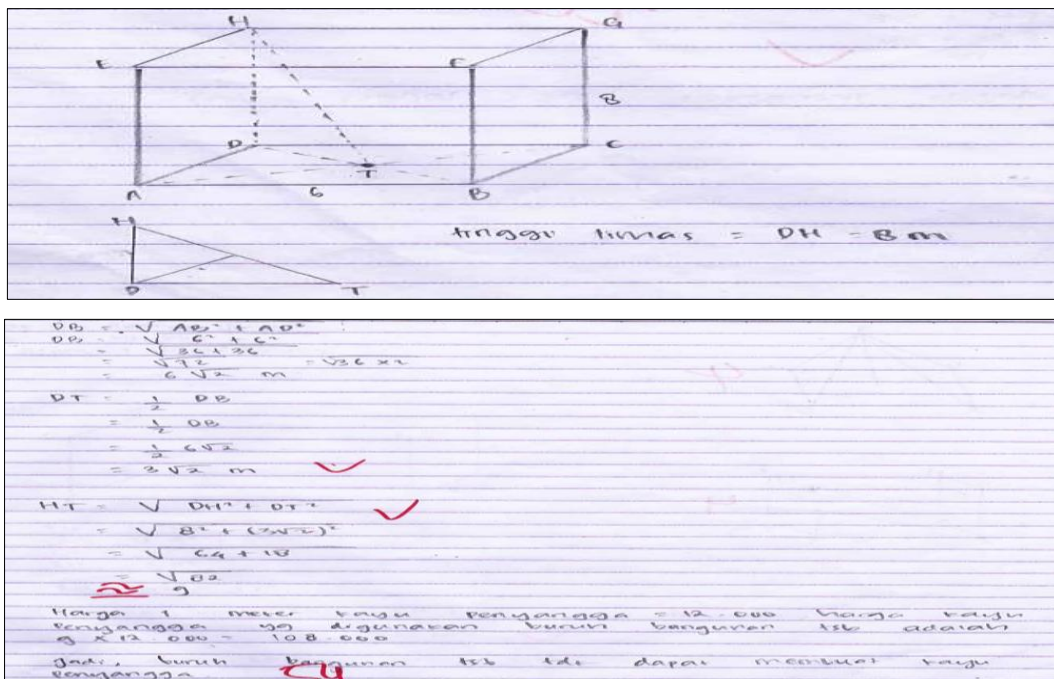 H G
E F
8
D C
T
A 6 B
H
tinggi limas = DH = 8 m
D T
DB = √ AB² + AD²
DB = √ 6² + 6²
= √36 + 36
= √72 = √36 x 2
= 6 √2 m
DT = 1/2 DB
= 1/2 DB
= 1/2 6√2
= 3√2 m
HT = √ DH² + DT²
= √ 8² + (3√2)²
= √ 64 + 18
= √82
≈ 9
Harga 1 meter kayu penyangga = 12.000 harga kayu
penyangga yg digunakan buruh bangunan tsb adalah
9 x 12.000 = 108.000
Jadi, buruh bangunan tsb tdk dapat membuat kayu
penyangga